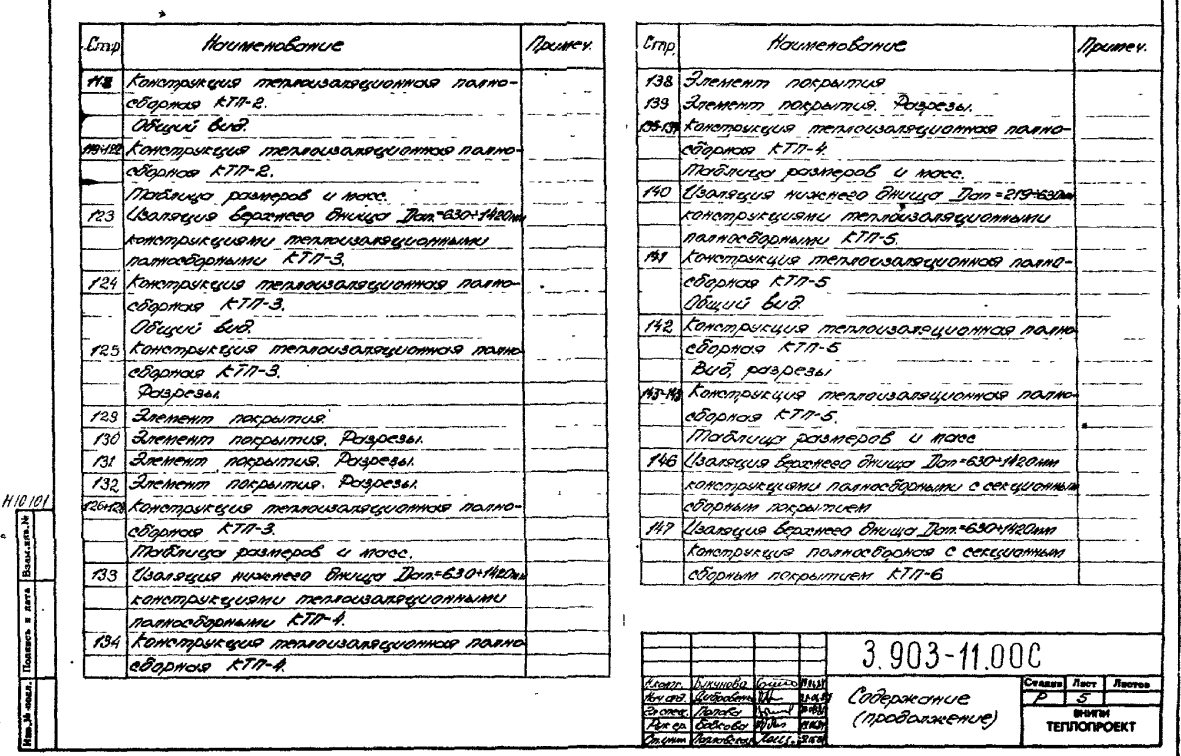 Стр Наименование Примеч.
118 Конструкция теплоизоляционная полно-
сборная КТП-2.
Общий вид.
119÷122 Конструкция теплоизоляционная полно-
сборная КТП-2.
Таблица размеров и масс.
123 Изоляция верхнего днища Dап.=630÷1420мм
конструкциями теплоизоляционными
полносборными КТП-3.
124 Конструкция теплоизоляционная полно-
сборная КТП-3.
Общий вид.
125 Конструкция теплоизоляционная полно
сборная КТП-3.
Разрезы.
129 Элемент покрытия.
130 Элемент покрытия. Разрезы.
131 Элемент покрытия. Разрезы.
132 Элемент покрытия. Разрезы.
126÷128 Конструкция теплоизоляционная полно-
сборная КТП-3.
Таблица размеров и масс.
133 Изоляция нижнего днища Dап.=630÷1420мм
конструкциями теплоизоляционными
полносборными КТП-4.
134 Конструкция теплоизоляционная полно
сборная КТП-4.
Стр. Наименование Примеч.
138 Элемент покрытия
139 Элемент покрытия. Разрезы.
135-137 Конструкция теплоизоляционная полно-
сборная КТП-4.
Таблица размеров и масс.
140 Изоляция нижнего днища Dап=219÷630мм
конструкциями теплоизоляционными
полносборными КТП-5.
141 Конструкция теплоизоляционная полно-
сборная КТП-5
Общий вид
142 Конструкция теплоизоляционная полно
сборная КТП-5
Вид, разрезы
Конструкция теплоизоляционная полно-
сборная КТП-5.
Таблица размеров и масс
146 Изоляция верхнего днища Dап=630÷1420мм
конструкциями полносборными с секционным
сборным покрытием
147 Изоляция верхнего днища Dап=630÷1420мм
Конструкция полносборная с секционным
сборным покрытием КТП-6
Н10101
Взам.инв.№
Подпись и дата
Инв.№ подл.
3.903-11.00С
Н.контр. Бикунова
Нач.отд.
Гл.спец. Попова
Рук.гр. Бобкова
Содержание
(продолжение)
Стадия Лист Листов
Р 5
ВНИПИ
ТЕПЛОПРОЕКТ